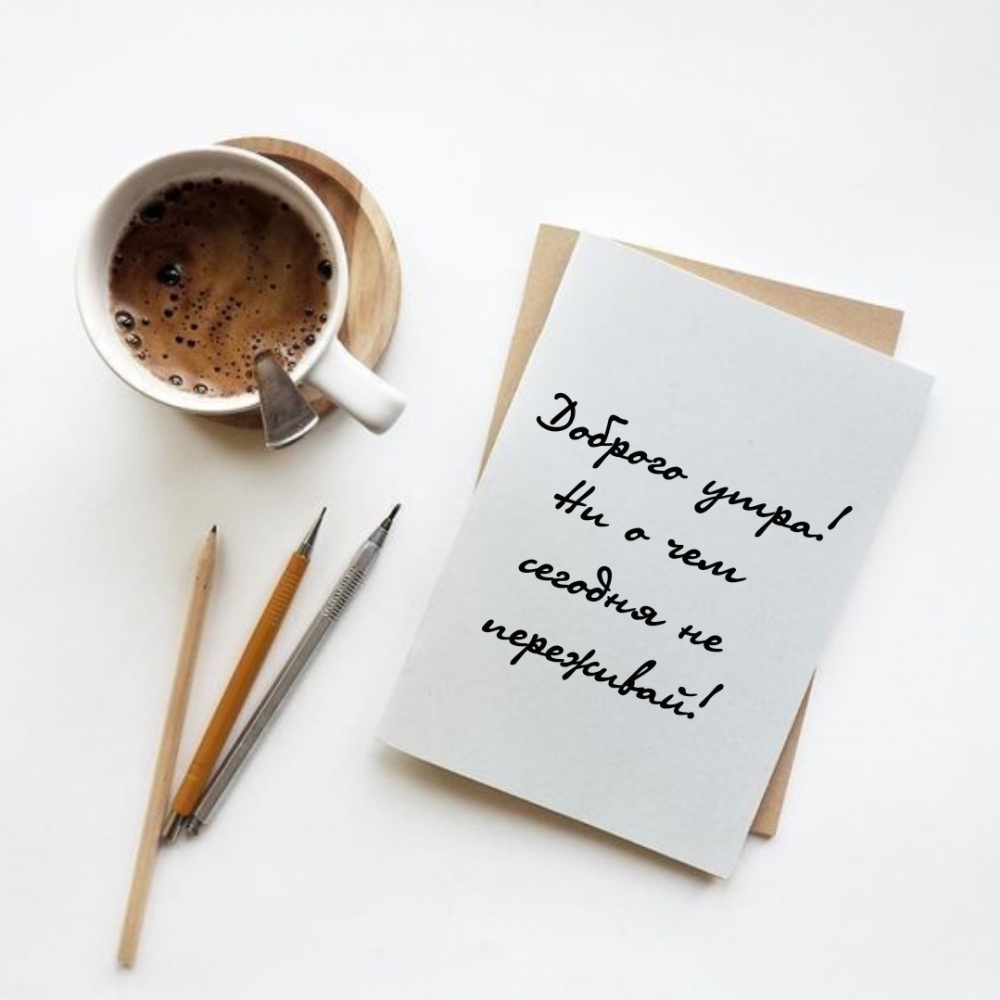 Доброго утра!
Ни о чем
сегодня не
переживай!